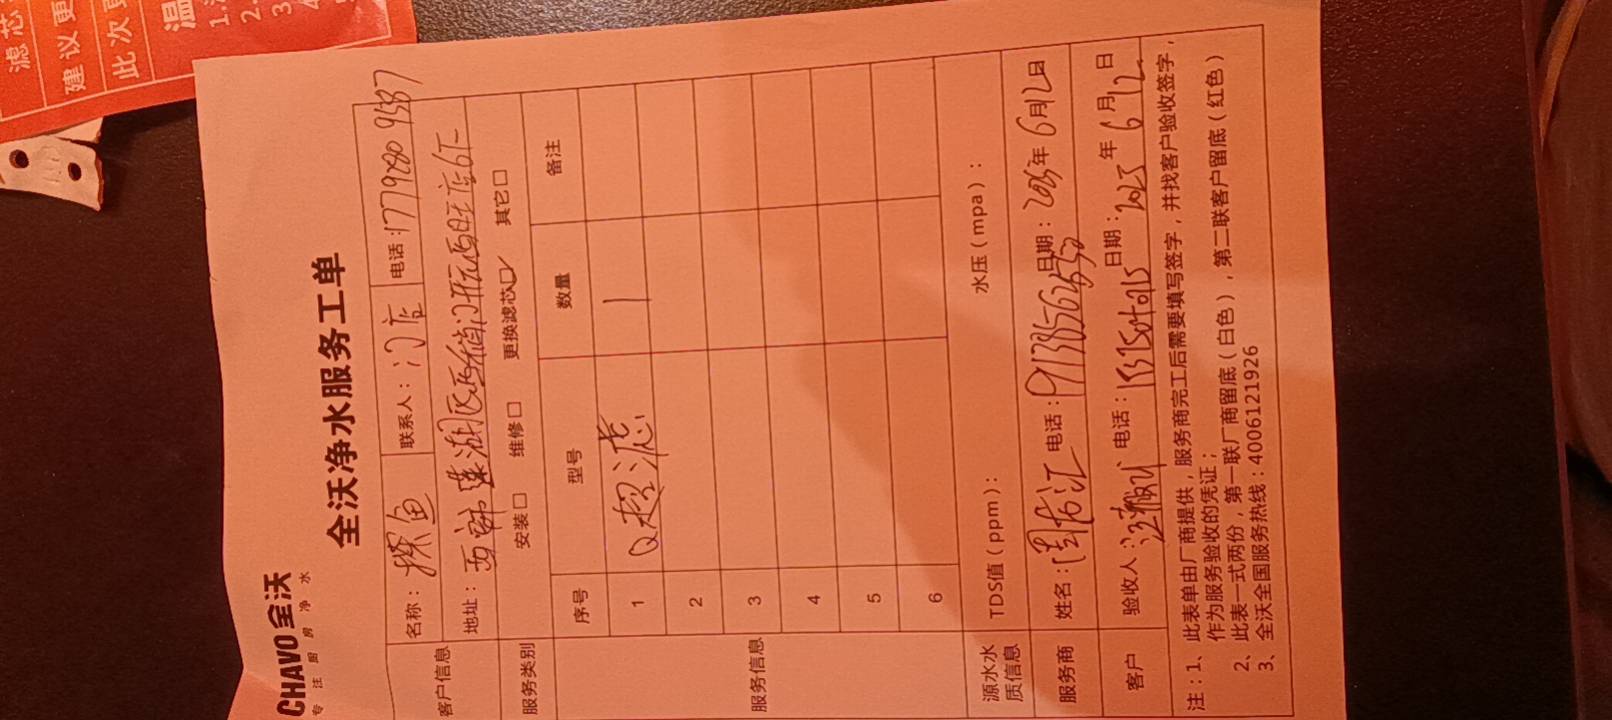 滤芯
建议更
此次更
温
1.
2.
3
4
CHAVO 全沃
专注厨房净水
全沃净水服务工单
客户信息 名称: 探鱼 联系人: 门店 电话: 177980 9587
地址:
服务类别 安装□ 维修□ 更换滤芯□✓ 其它□
服务信息 序号 型号 数量 备注
1 Q超滤 1
2
3
4
5
6
源水水质信息 TDS值(ppm): 水压(mpa):
服务商 姓名: 电话: 日期: 年6月12日
客户 验收人: 电话: 日期: 2023年6月12日
注:1、此表单由厂商提供,服务商完工后需要填写签字,并找客户验收签字,
作为服务验收的凭证;
2、此表一式两份,第一联厂商留底(白色),第二联客户留底(红色)
3、全沃全国服务热线:4006121926